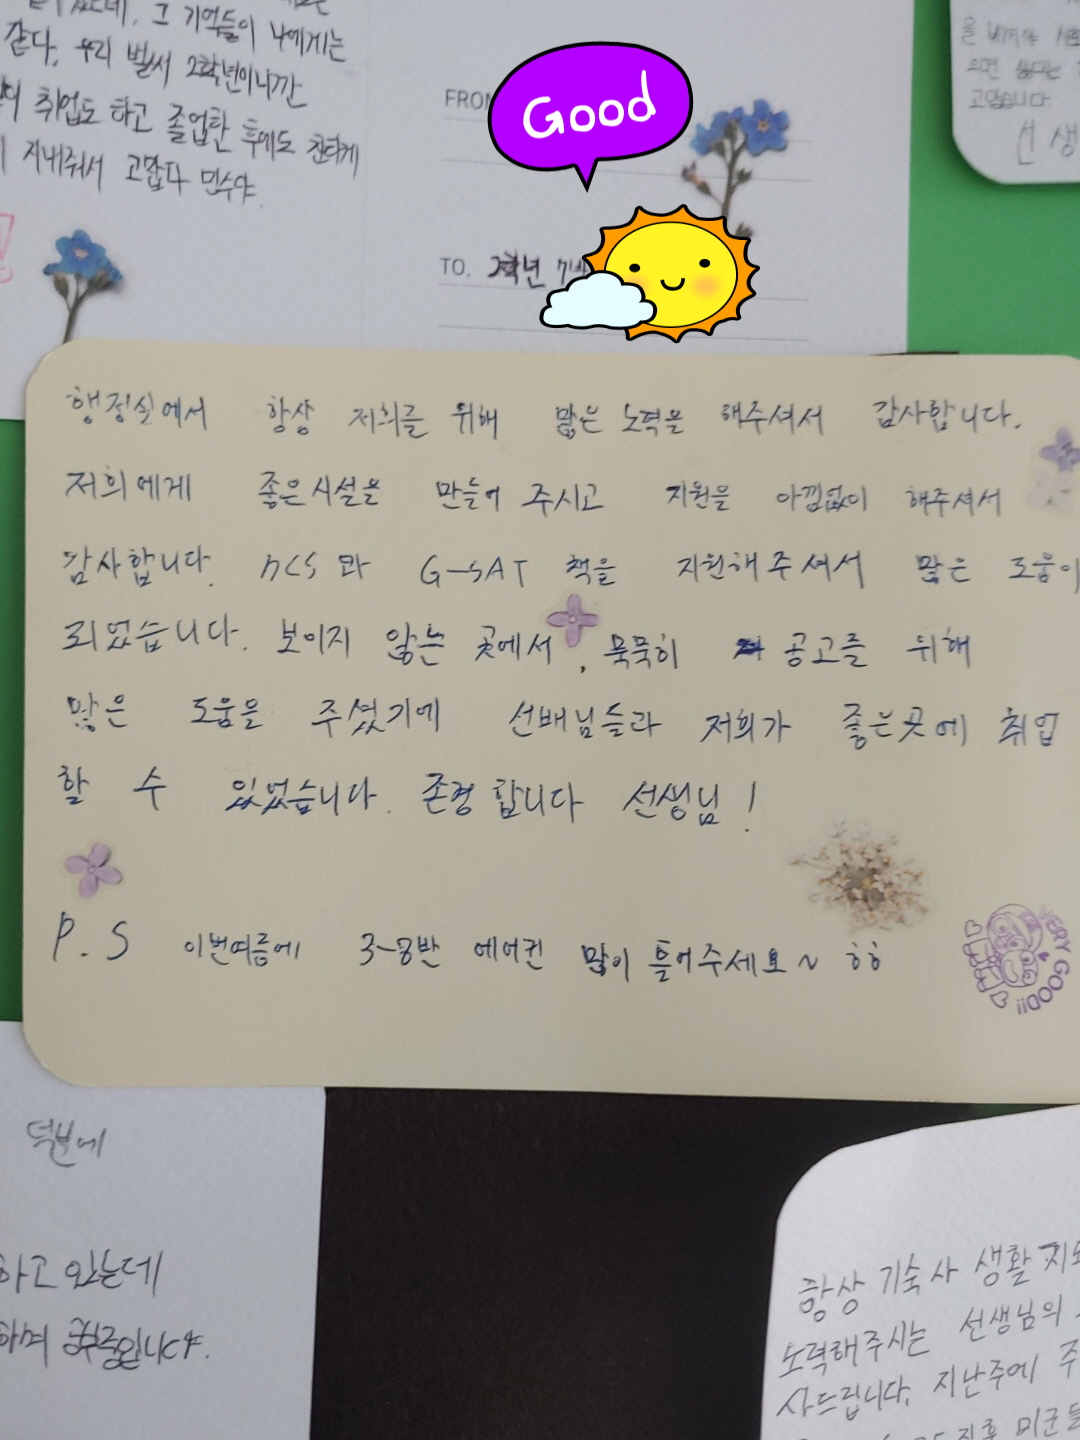 그 기억들이 나에게는
같다, 우리 벌써 2학년이니깐
취업도 하고 졸업한 후에도 친하게
지내줘서 고맙다 민수야.
FROM
Good
TO. 2학년 7반
고맙습니다.
선생
행정실에서 항상 저희를 위해 많은 노력을 해주셔서 감사합니다.
저희에게 좋은시설을 만들어 주시고 지원을 아낌없이 해주셔서
감사합니다. NCS와 G-SAT 책을 지원해주셔서 많은 도움이
되었습니다. 보이지 않는 곳에서, 묵묵히 공고를 위해
많은 도움을 주셨기에 선배님들과 저희가 좋은곳에 취업
할 수 있었습니다. 존경합니다 선생님!
P.S 이번여름에 3-8반 에어컨 많이 틀어주세요~ ㅎㅎ
VERY GOOD!!
덕분에
하고 있는데
하며
항상 기숙사 생활 지도
노력해주시는 선생님의
사드립니다. 지난주에 주